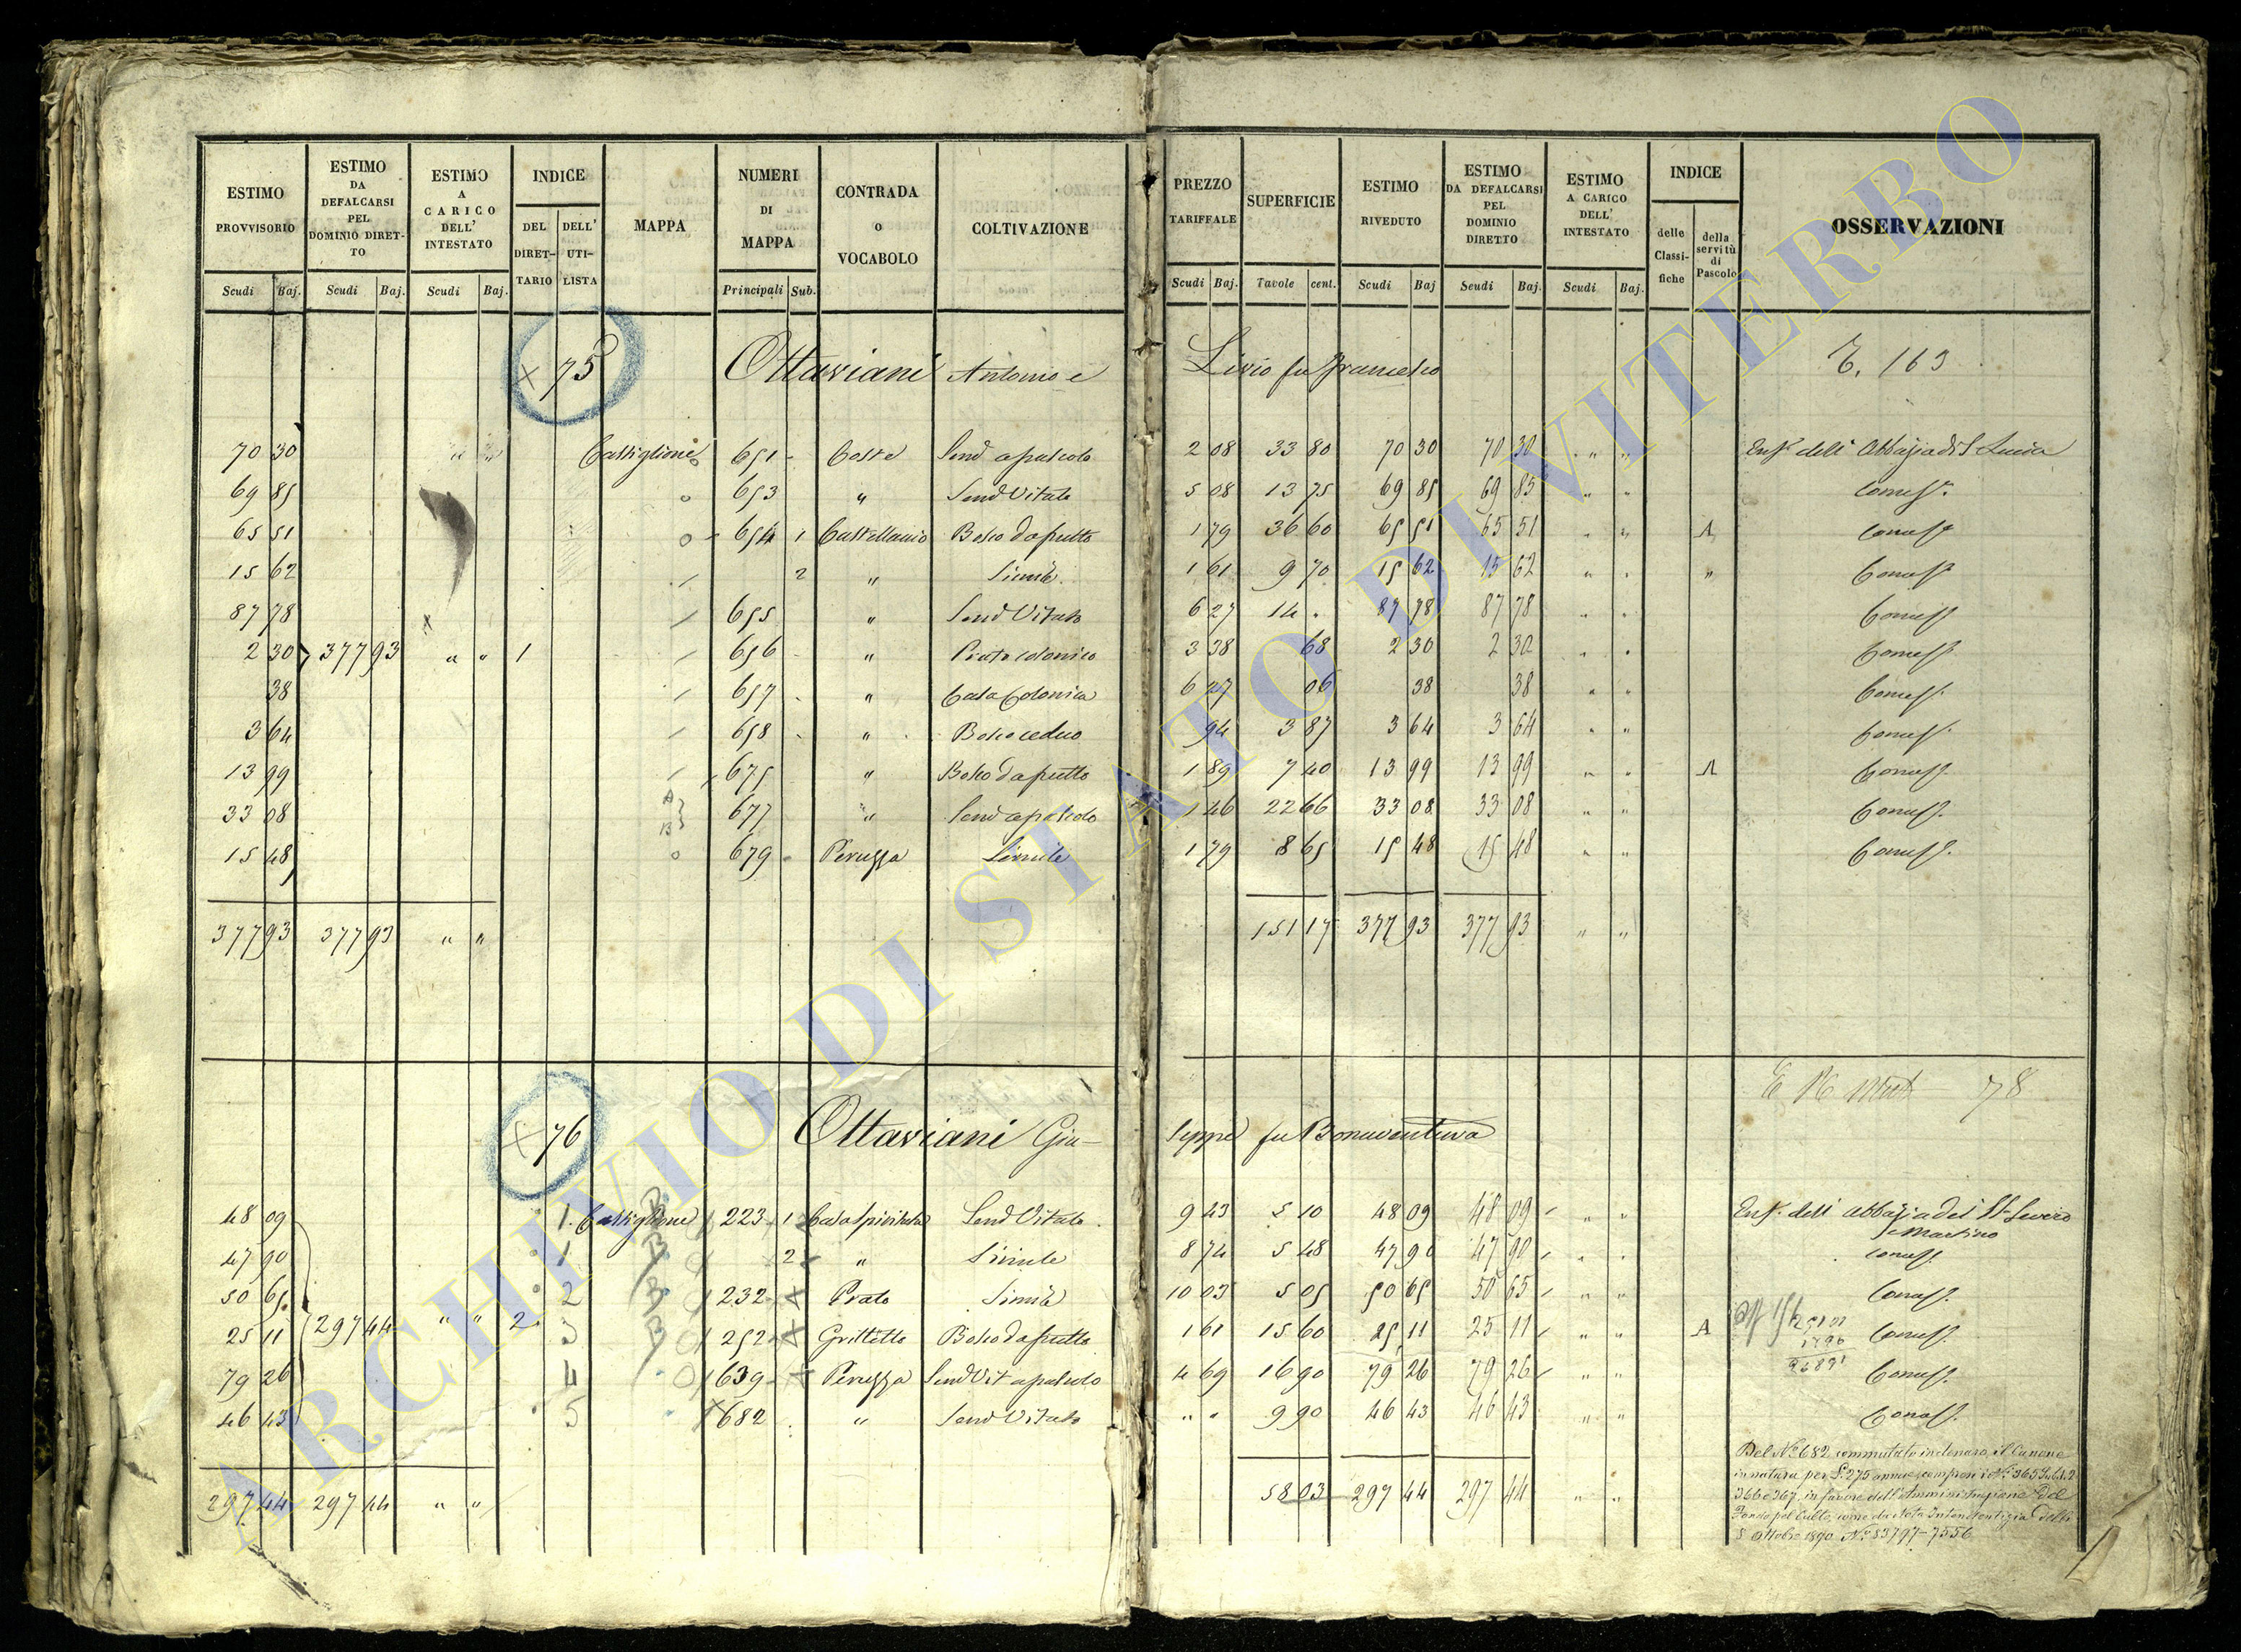 ESTIMO PROVVISORIO Scudi Baj.
ESTIMO DA DEFALCARSI PEL DOMINIO DIRETTO Scudi Baj.
ESTIMO A CARICO DELL' INTESTATO Scudi Baj.
INDICE DEL DIRETTARIO DELL' UTILISTA
MAPPA
NUMERI DI MAPPA Principali Sub.
CONTRADA O VOCABOLO
COLTIVAZIONE
PREZZO TARIFFALE Scudi Baj.
SUPERFICIE Tavole cent.
ESTIMO RIVEDUTO Scudi Baj
ESTIMO DA DEFALCARSI PEL DOMINIO DIRETTO Scudi Baj.
ESTIMO A CARICO DELL' INTESTATO Scudi Baj.
INDICE delle Classifiche della servitù di Pascolo
OSSERVAZIONI
× 75 Ottaviani Antonio e Livio fu Francesco 163
70 30 " " Castiglione 651 - Coste Send a pascolo 2 08 33 80 70 30 70 30 " " Enf. dell' Abbazia di S Lucia
69 85 653 " Send Vitato 5 08 13 75 69 85 69 85 " " Come s.
65 51 654 1 Castellaccio Bosco da frutto 1 79 36 60 65 51 65 51 " " A Come s.
15 62 2 " Simile 1 61 9 70 15 62 15 62 " " " Come s.
87 78 655 " Send Vitato 6 27 14 . 87 78 87 78 " " Come s.
2 30 377 93 " " 1 656 " Prato colonico 3 38 68 2 30 2 30 " " Come s.
38 657 " Casa Colonica 6 27 06 38 38 " " Come s.
3 64 658 " Bosco ceduo 94 3 87 3 64 3 64 " " Come s.
13 99 675 " Bosco da frutto 1 89 7 40 13 99 13 99 " " A Come s.
33 08 A B 677 " Send a pascolo 1 46 22 66 33 08 33 08 " " Come s.
15 48 679 Peruzza Simile 1 79 8 65 15 48 15 48 " " Come s.
377 93 377 93 " " 151 17 377 93 377 93 " "
78
× 76 Ottaviani Giu- seppe fu Bonaventura
48 09 1 Castiglione 223 1 Send Vitato 9 43 5 10 48 09 48 09 " " Enf. dell' abbazia dei SS. Severo e Martino
47 90 1 2 " Simile 8 74 5 48 47 90 47 90 " " Come s.
50 65 2 B 232 Prato Simile 10 03 5 05 50 65 50 65 " " Come s.
25 11 297 44 " " 2 3 B 252 Grilletto Bosco da frutto 1 61 15 60 25 11 25 11 " " A Come s.
79 26 4 639 Peruzza Send Vit a pascolo 4 69 16 90 79 26 79 26 " " Come s.
46 43 5 682 " Send Vitato " " 9 90 46 43 46 43 " " Come s.
297 44 297 44 " " 58 03 297 44 297 44 " "
Del N.° 682 commutato in denaro il Canone
in natura per £. 275 annue compresi i N.i 365 Sub. 1. 2
366 e 367, in favore dell'Amministrazione del
Fondo pel Culto, come da Nota Intendentizia delli
8 Ottobre 1890 N.° 83797-7556
ARCHIVIO DI STATO DI VITERBO